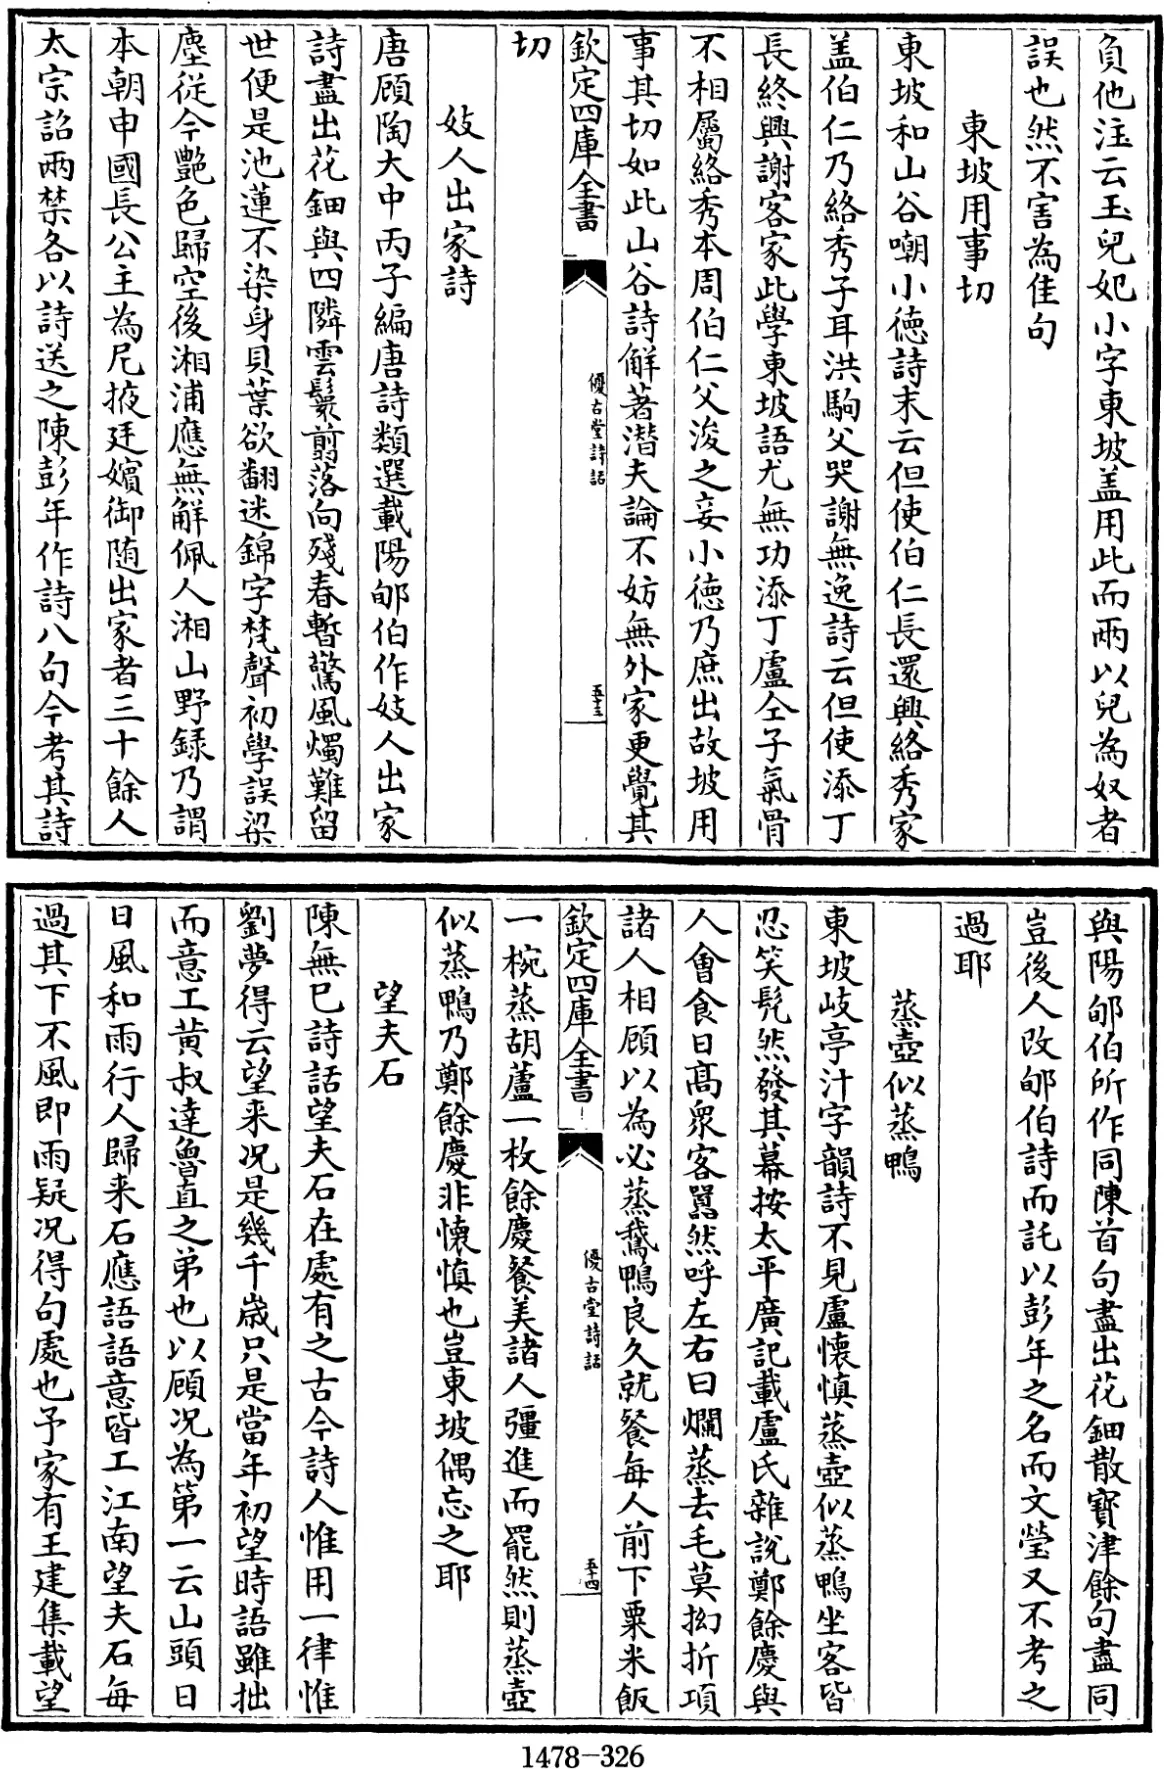 負他注云玉兒妃小字東坡盖用此而兩以兒為奴者
誤也然不害為佳句
東坡用事切
東坡和山谷嘲小徳詩末云但使伯仁長還興絡秀家
盖伯仁乃絡秀子耳洪駒父哭謝無逸詩云但使添丁
長終興謝客家此學東坡語尤無功添丁盧仝子氣骨
不相屬絡秀本周伯仁父浚之妾小徳乃庶出故坡用
事其切如此山谷詩解著潜夫論不妨無外家更覺其
欽定四庫全書
優古堂詩話
五十三
切
妓人出家詩
唐顧陶大中丙子編唐詩類選載陽郇伯作妓人出家
詩盡出花鈿與四隣雲鬟剪落向殘春暫驚風燭難留
世便是池蓮不染身貝葉欲翻迷錦字梵聲初學誤梁
塵從今艷色歸空後湘浦應無解佩人湘山野録乃謂
本朝申國長公主為尼掖廷嬪御随出家者三十餘人
太宗詔兩禁各以詩送之陳彭年作詩八句今考其詩
與陽郇伯所作同陳首句盡出花鈿散寶津餘句盡同
豈後人改郇伯詩而託以彭年之名而文瑩又不考之
過耶
蒸壺似蒸鴨
東坡岐亭汁字韻詩不見盧懐慎蒸壺似蒸鴨坐客皆
忍笑髠然發其幕按太平廣記載盧氏雜說鄭餘慶與
人會食日髙衆客嚣然呼左右曰爛蒸去毛莫拗折項
諸人相顧以為必蒸鵞鴨良久就餐每人前下粟米飯
欽定四庫全書
優古堂詩話
五十四
一椀蒸胡蘆一枚餘慶餐美諸人彊進而罷然則蒸壺
似蒸鴨乃鄭餘慶非懐慎也豈東坡偶忘之耶
望夫石
陳無已詩話望夫石在處有之古今詩人惟用一律惟
劉夢得云望来况是幾千歳只是當年初望時語雖拙
而意工黄叔達魯直之弟也以顧况為第一云山頭日
日風和雨行人歸来石應語語意皆工江南望夫石每
過其下不風即雨疑况得句處也予家有王建集載望
1478-326